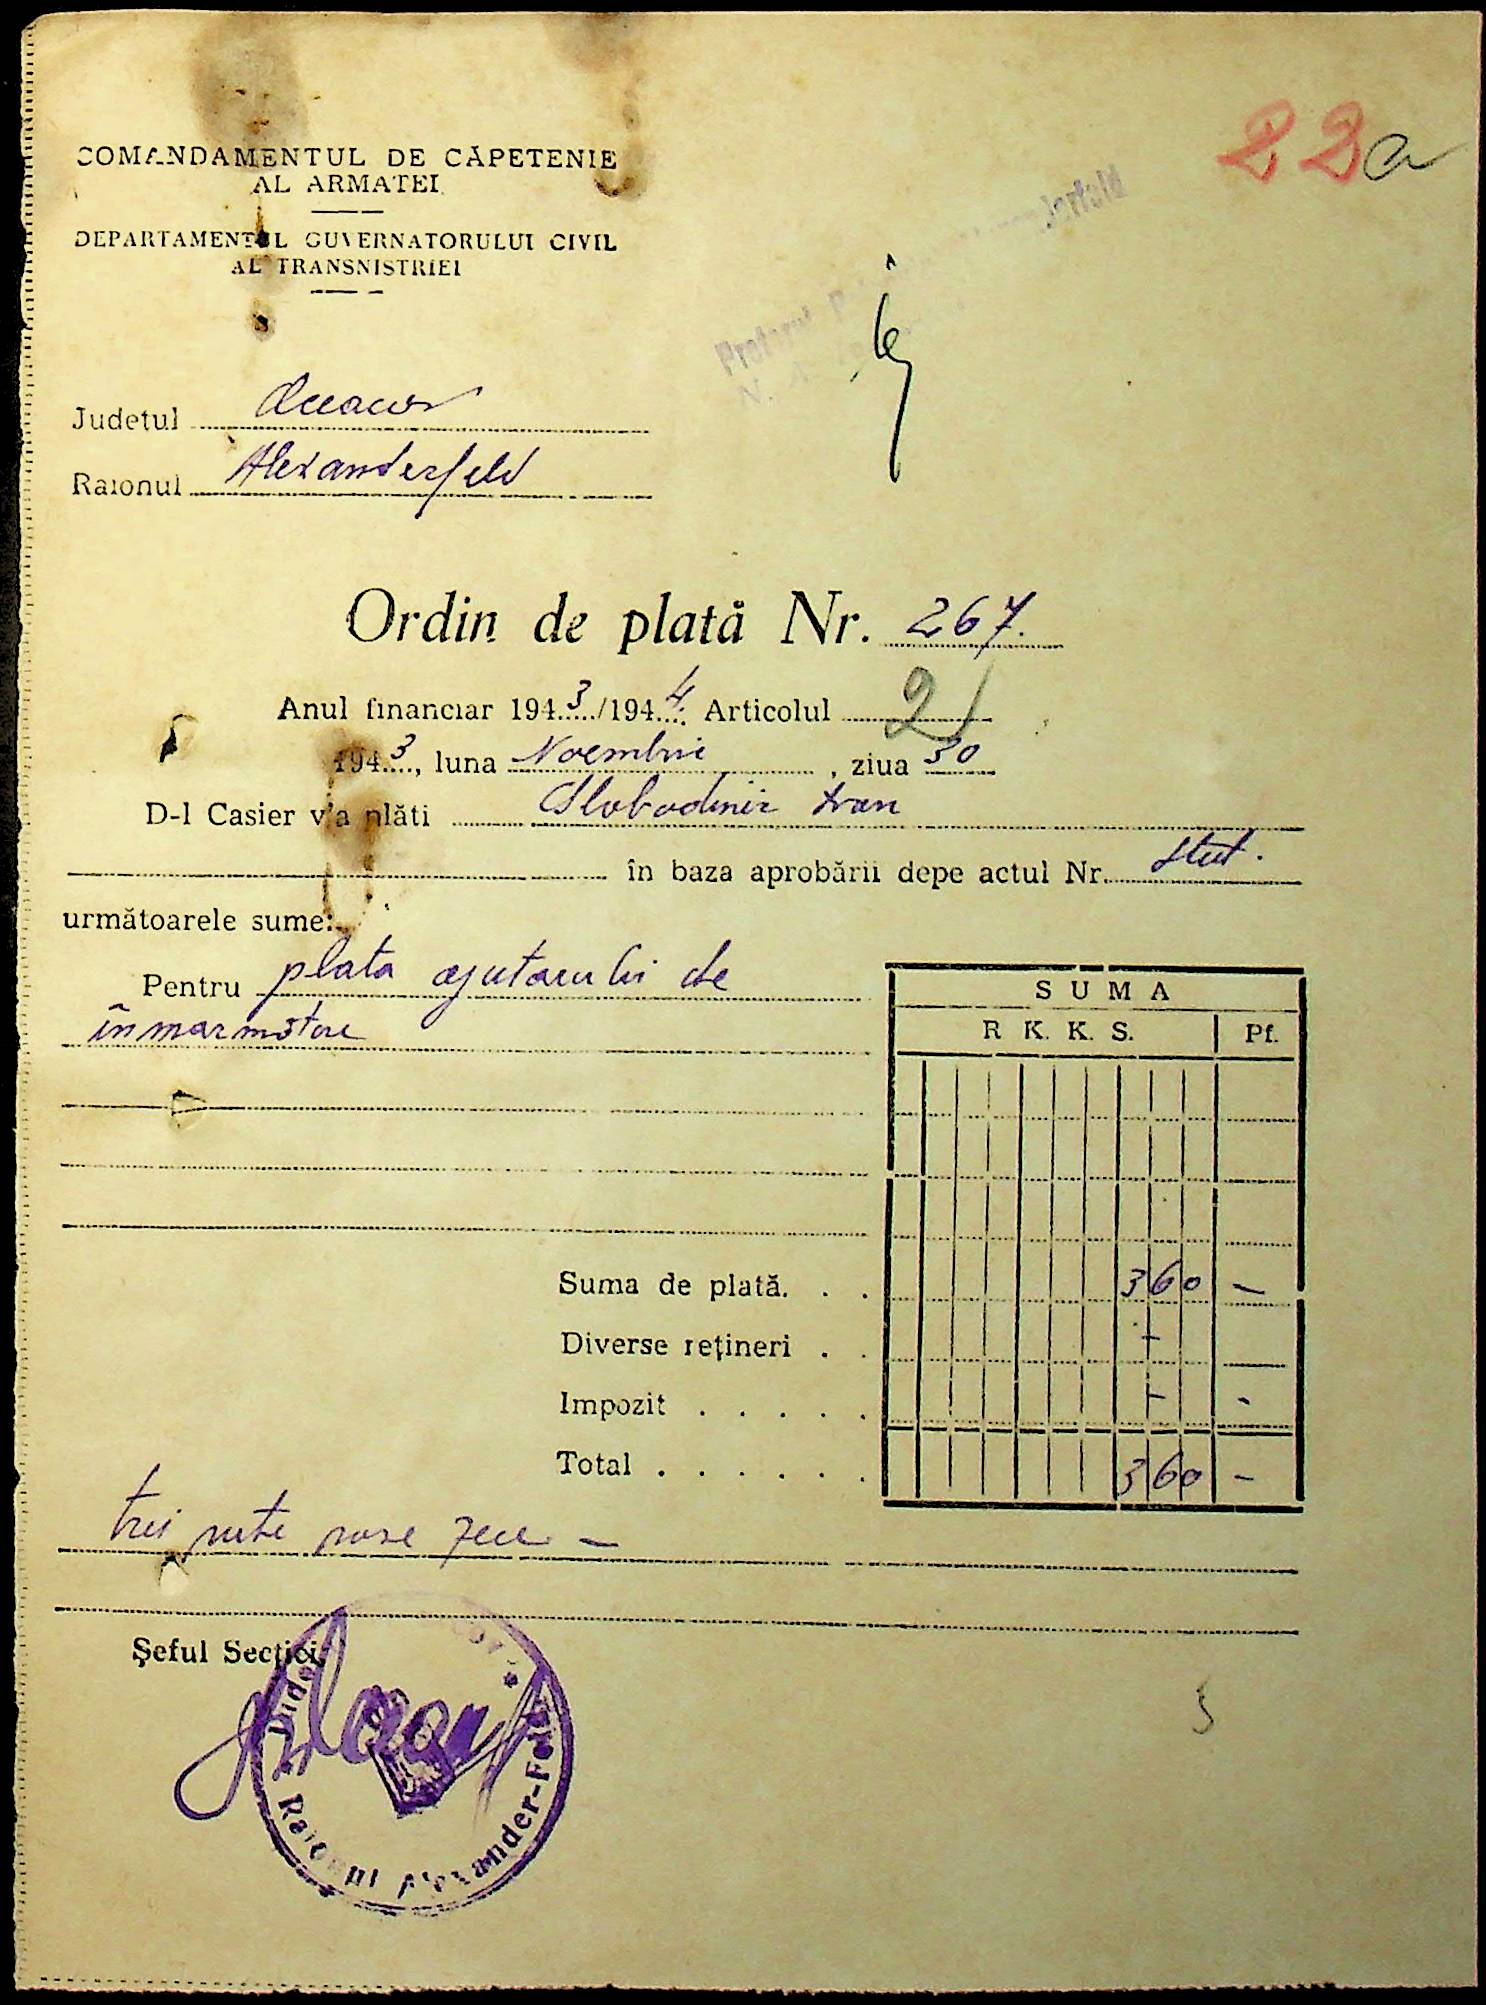 22a
COMANDAMENTUL DE CĂPETENIE
AL ARMATEI
DEPARTAMENTUL GUVERNATORULUI CIVIL
AL TRANSNISTRIEI
Judetul Oceacov
Raionul Alexanderfeld
Ordin de plată Nr. 267.
Anul financiar 1943/1944. Articolul 21
1943, luna Noembrie, ziua 30
D-l Casier v'a plăti Slobodnic Ivan
în baza aprobării depe actul Nr. Stat.
următoarele sume:
Pentru plata ajutorului de
înmormătare
SUMA
R K. K. S. Pf.
Suma de plată. . . 360 —
Diverse reţineri . . —
Impozit . . . . . — -
Total . . . . . . 360 —
trei sute șase zece —
Şeful Secţiei,
Raionul Alexander-Feld